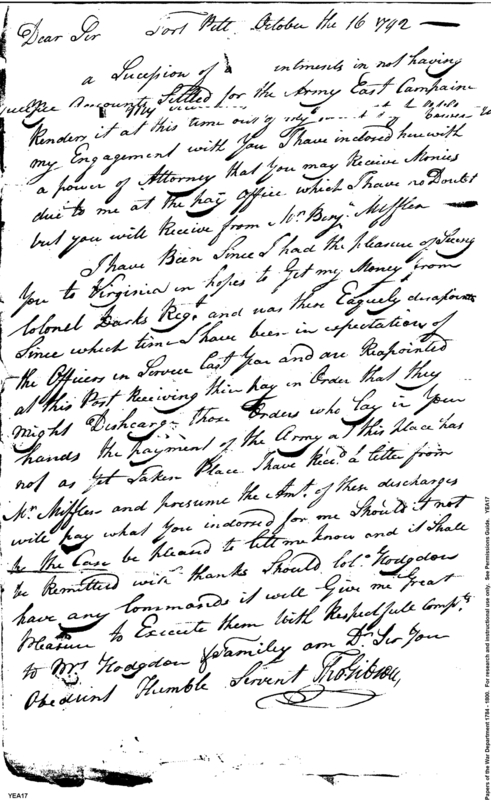 Fort Pitt October the 16 1792 —
Dear Sir
a Sucession of intments in not having
my Accounts Settled for the Army Last Campain
Renders it at this time out of my
my Engagement with You I have inclosed herewith
a power of Attorney that you may Receive Monies
due to me at the pay Office which I have no Doubt
but you will Receive from Mr Benj.n Mifflen —
I have Been Since I had the pleasure of Seeing
You to Virginia in hopes to Get my Money from
Colonel Darks Regt and was there Eaquely disapoint
Since which time I have been in expectations of
the Officers in Service Last Year and are Reapointed
at this Post Receiving their pay in Order that they
might Discharg those Orders who Lay in Your
hands the payment of the Army at this place has
not as Yet Taken Place I have Recd a letter from
Mr Mifflen and presume the Amt of these discharges
will pay what You indorsed for me Should it not
be the Case be pleased to lett me know and it Shall
be Remitted with thanks Should Colo Hodgdon
have any Commands it will Give me Great
Pleasure to Execute them With Respectfull Compts
to Mrs Hodgdon & Familey am Dr Sir Your
Obedient Humble Servent Tho Gibson
YEA17
Papers of the War Department 1784 - 1800. For research and instructional use only. See Permissions Guide. YEA17